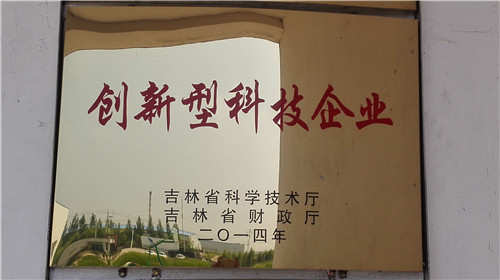 创新型科技企业
吉林省科学技术厅
吉林省财政厅
二〇一四年